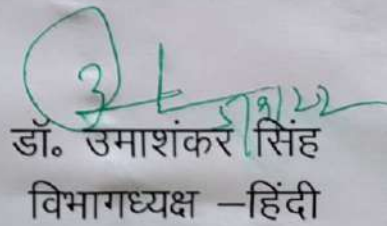 डॉ॰ उमाशंकर सिंह
विभागध्यक्ष –हिंदी